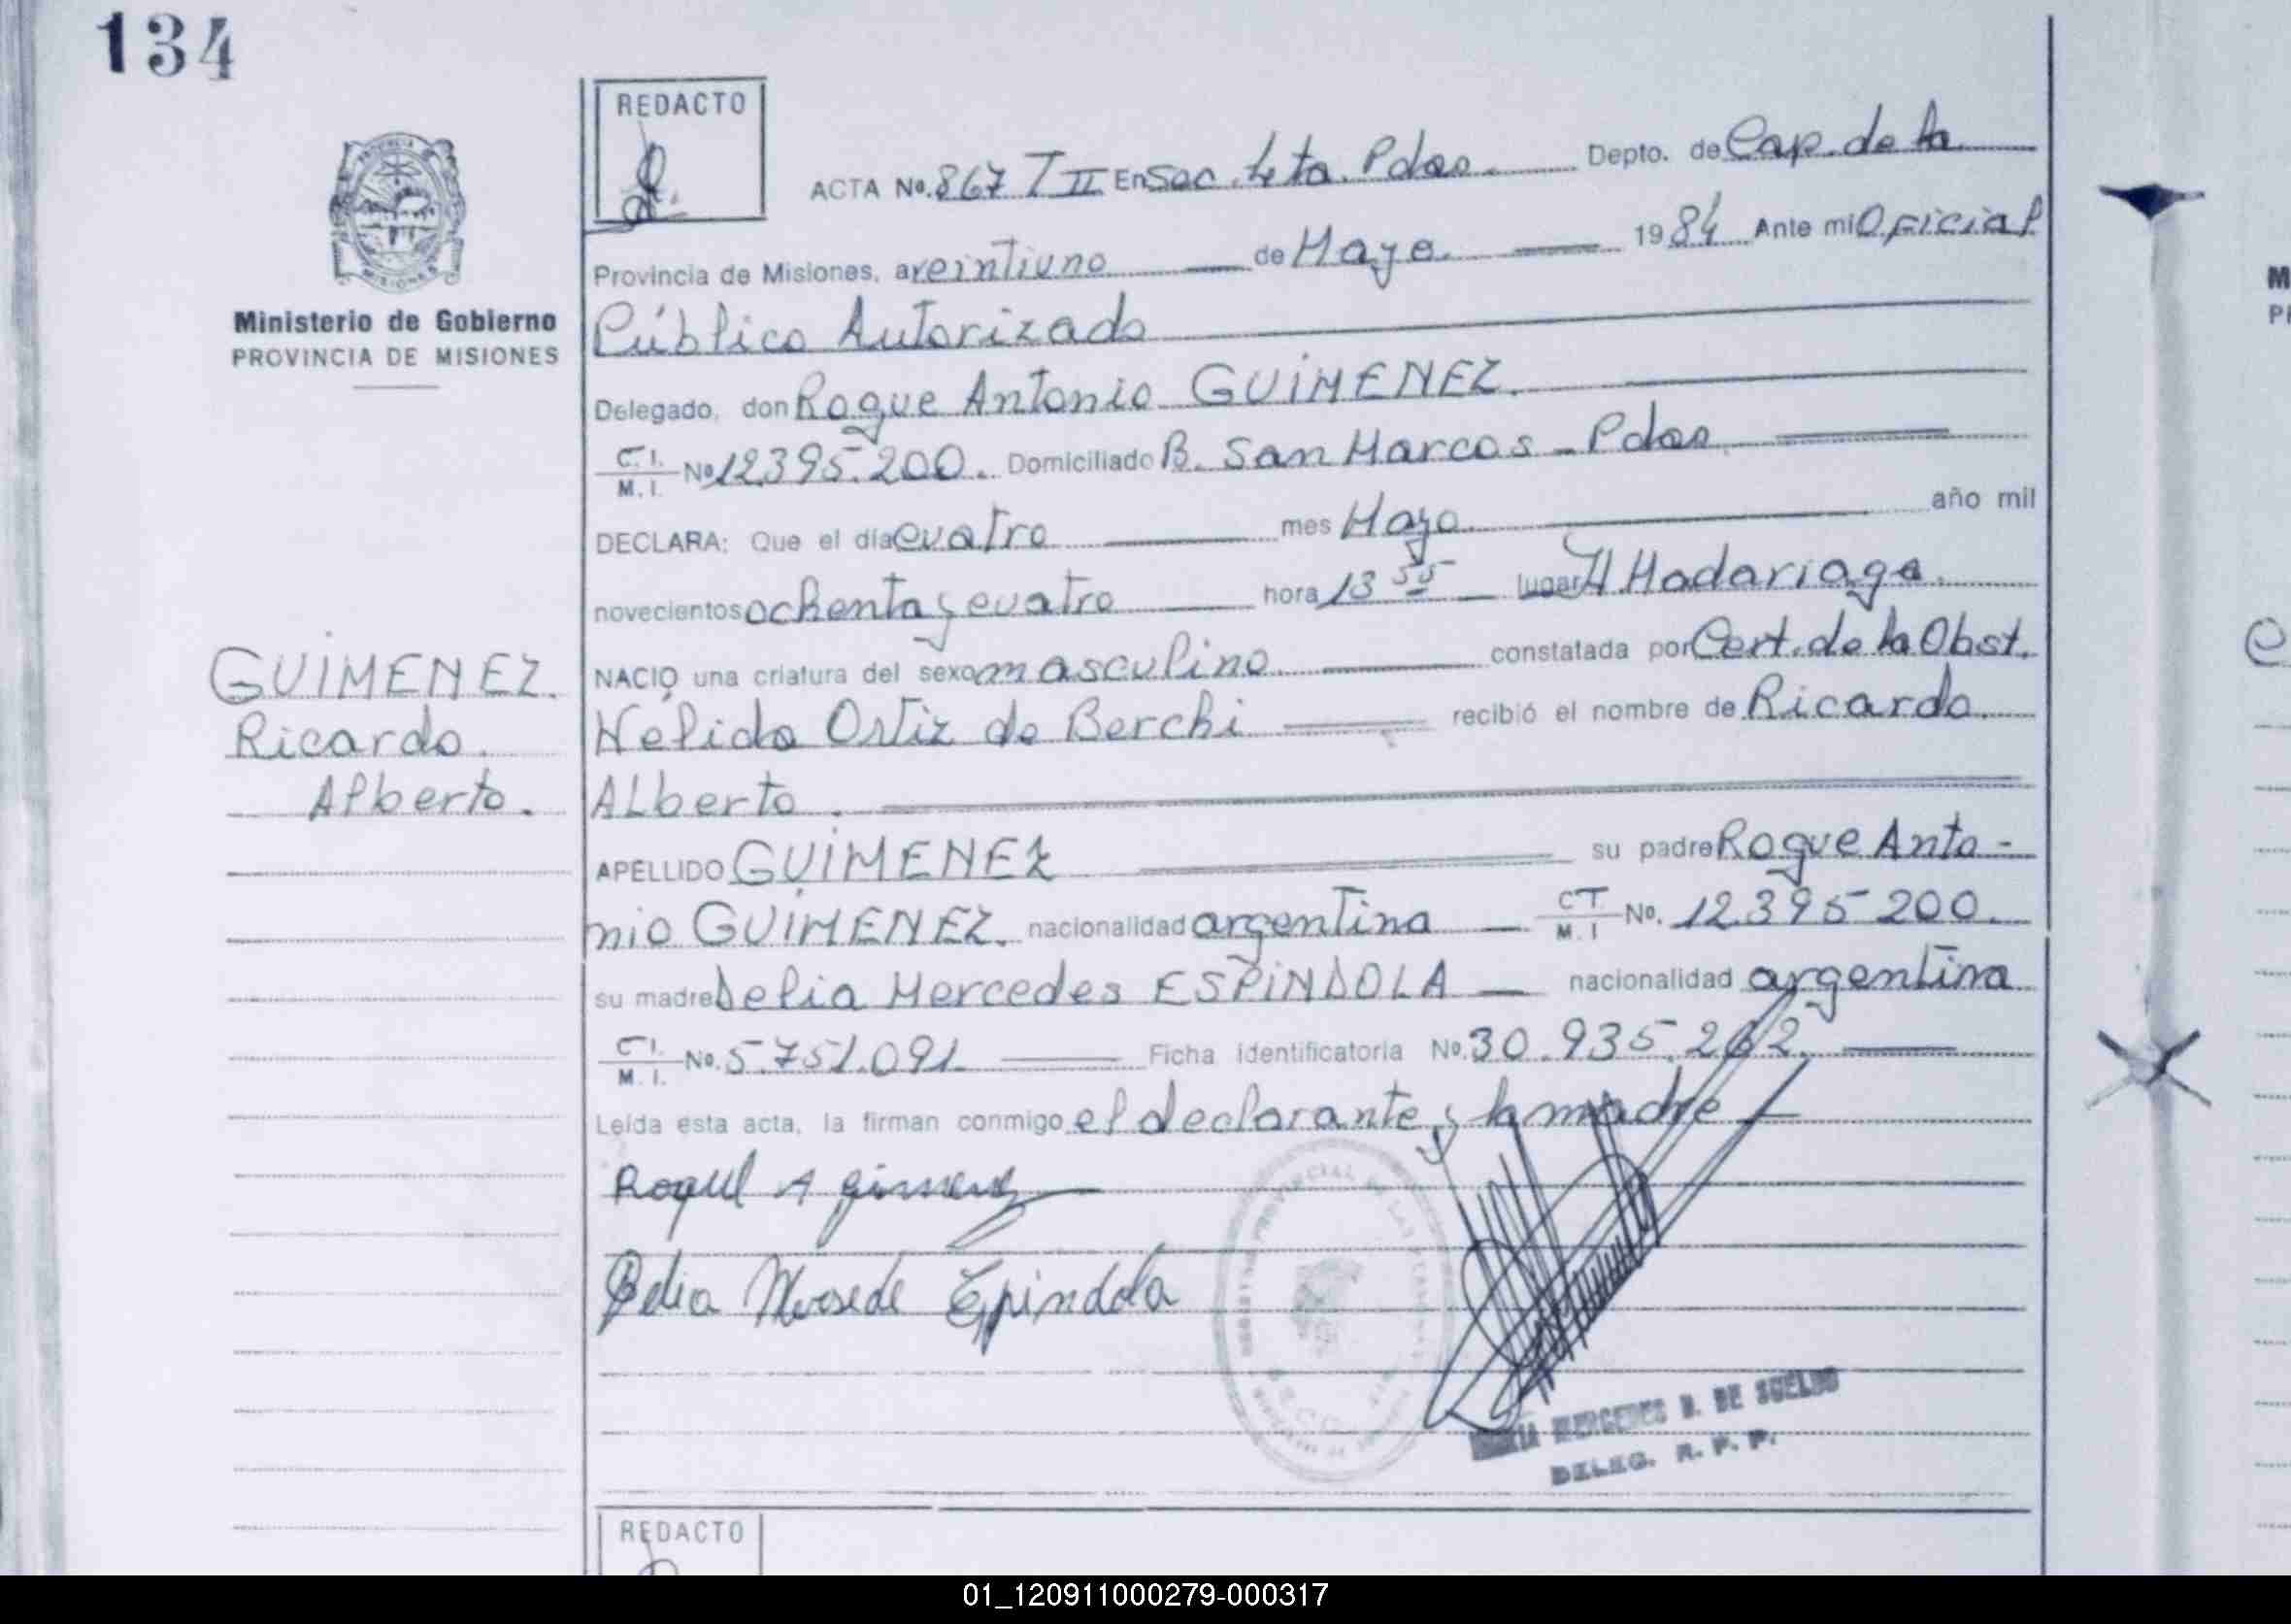 134
REDACTO
ACTA No. 867 T II En Sec. 4ta. Pdas. Depto. de Cap. de la
Provincia de Misiones, a veintiuno de Mayo. 1984 Ante mi Oficial
Público Autorizado
Ministerio de Gobierno
PROVINCIA DE MISIONES
Delegado, don Roque Antonio GUIMENEZ.
C. I. M. I. No 12.395.200. Domiciliado B. San Marcos - Pdas
DECLARA: Que el día cuatro mes Mayo. año mil
novecientos ochenta y cuatro hora 13 55 lugar H. Madariaga.
GUIMENEZ.
Ricardo.
Alberto.
NACIO una criatura del sexo masculino. constatada por Cert. de la Obst.
Nelida Ortiz de Berchi recibió el nombre de Ricardo
ALberto.
APELLIDO GUIMENEZ su padre Roque Anto-
nio GUIMENEZ. nacionalidad argentina CT M. I No. 12.395 200.
su madre Delia Mercedes ESPINDOLA nacionalidad argentina
C I. M. I. No. 5.751.091 Ficha identificatoria No. 30.935.262.
Leída esta acta, la firman conmigo el declarante y la madre
Roque A Gimenez
Delia Mersede Epindola
MERCEDES D. DE SUELDO
DELEG. R. P. P.
REDACTO
01_120911000279-000317